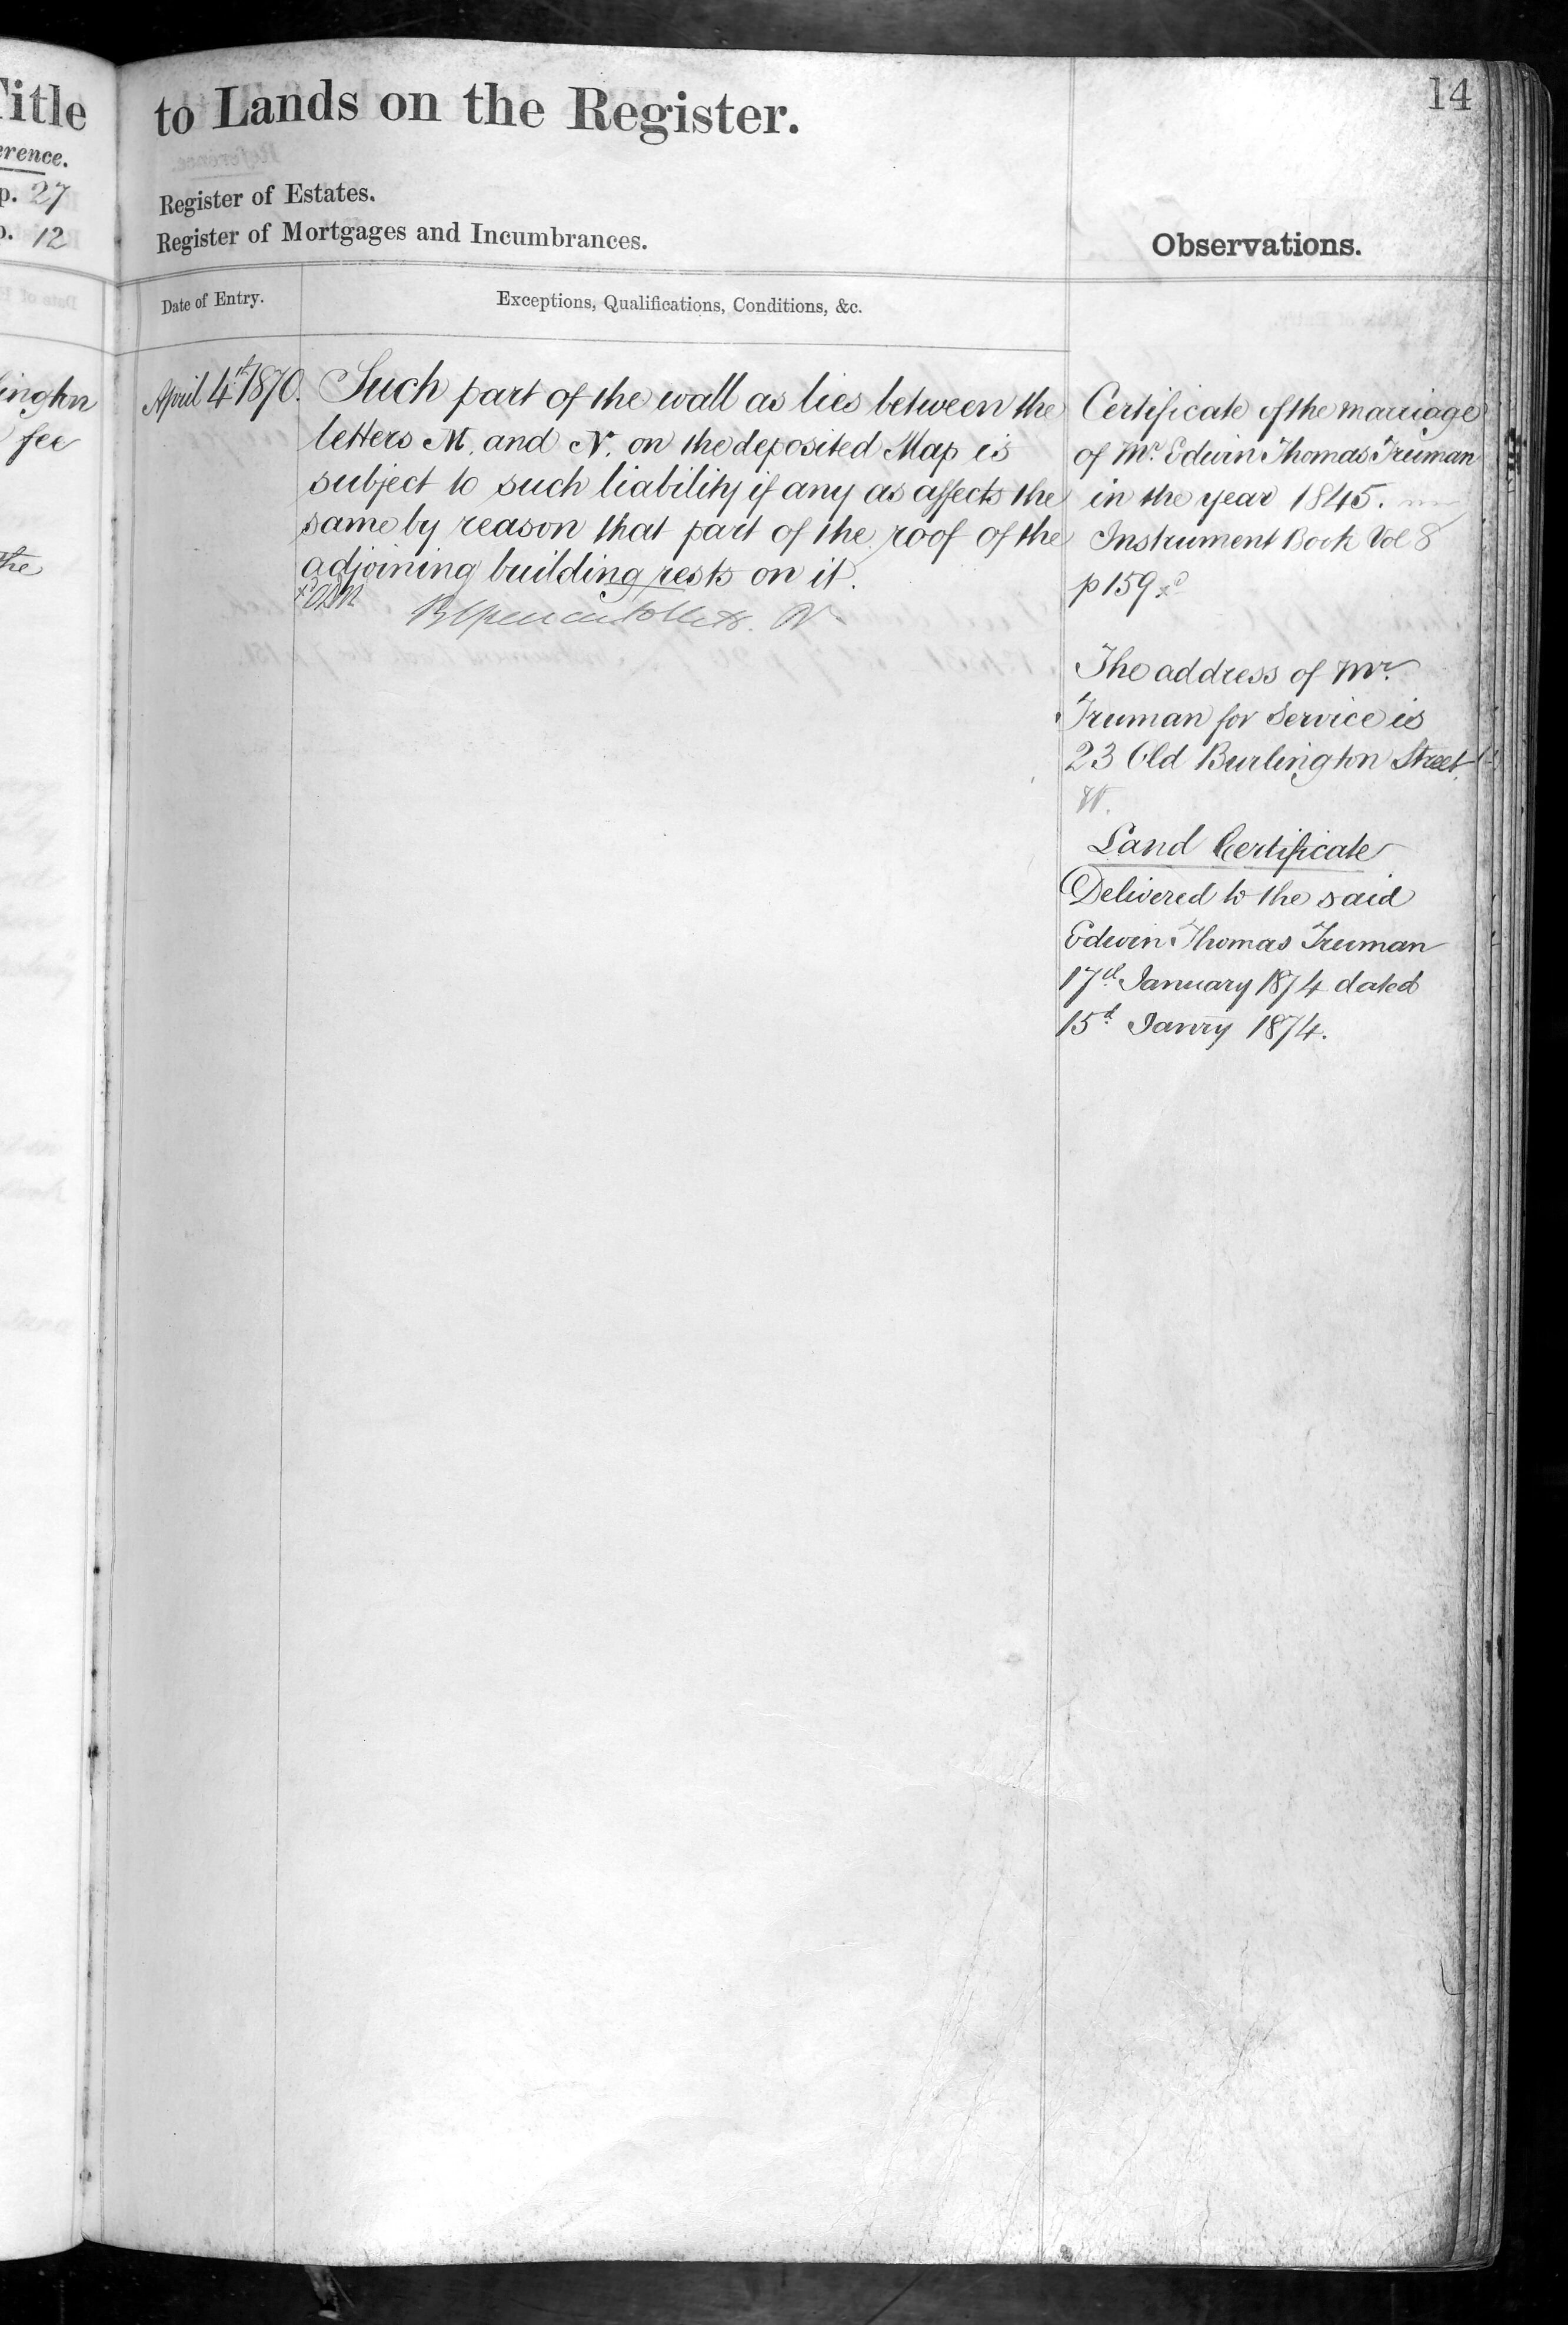 Title
erence.
p. 27
p. 12
ington
fee
the
14
to Lands on the Register.
Register of Estates.
Register of Mortgages and Incumbrances.
Observations.
Date of Entry.
Exceptions, Qualifications, Conditions, &c.
April 4th 1870.
Such part of the wall as lies between the
letters M. and N. on the deposited Map is
subject to such liability if any as affects the
same by reason that part of the roof of the
adjoining building rests on it.
Certificate of the marriage
of Mr. Edwin Thomas Truman
in the year 1845.
Instrument Book Vol 8
p 159
The address of Mr.
Truman for Service is
23 Old Burlington Street
W.
Land Certificate
Delivered to the said
Edwin Thomas Truman
17th January 1874 dated
15th Janry 1874.